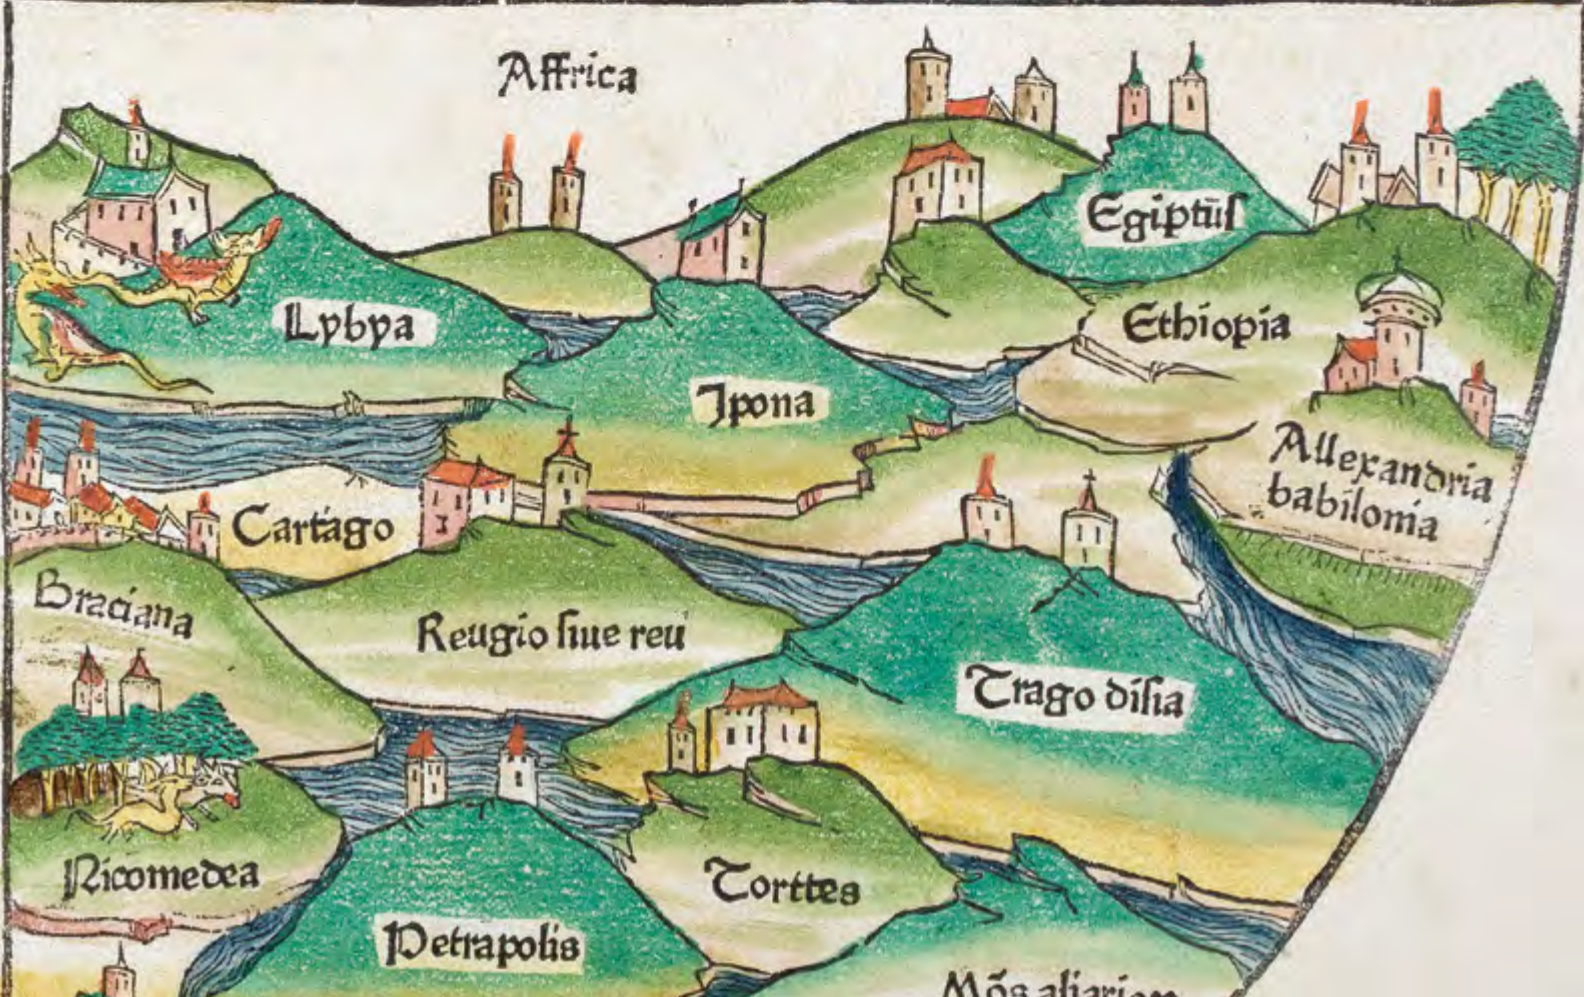 Affrica
Egiptūſ
Lybya
Ethiopia
Ipona
Allexandria
babilonia
Cartago
Braciana
Reugio ſiue reu
Trago diſia
Nicomedea
Torttes
Petrapolis